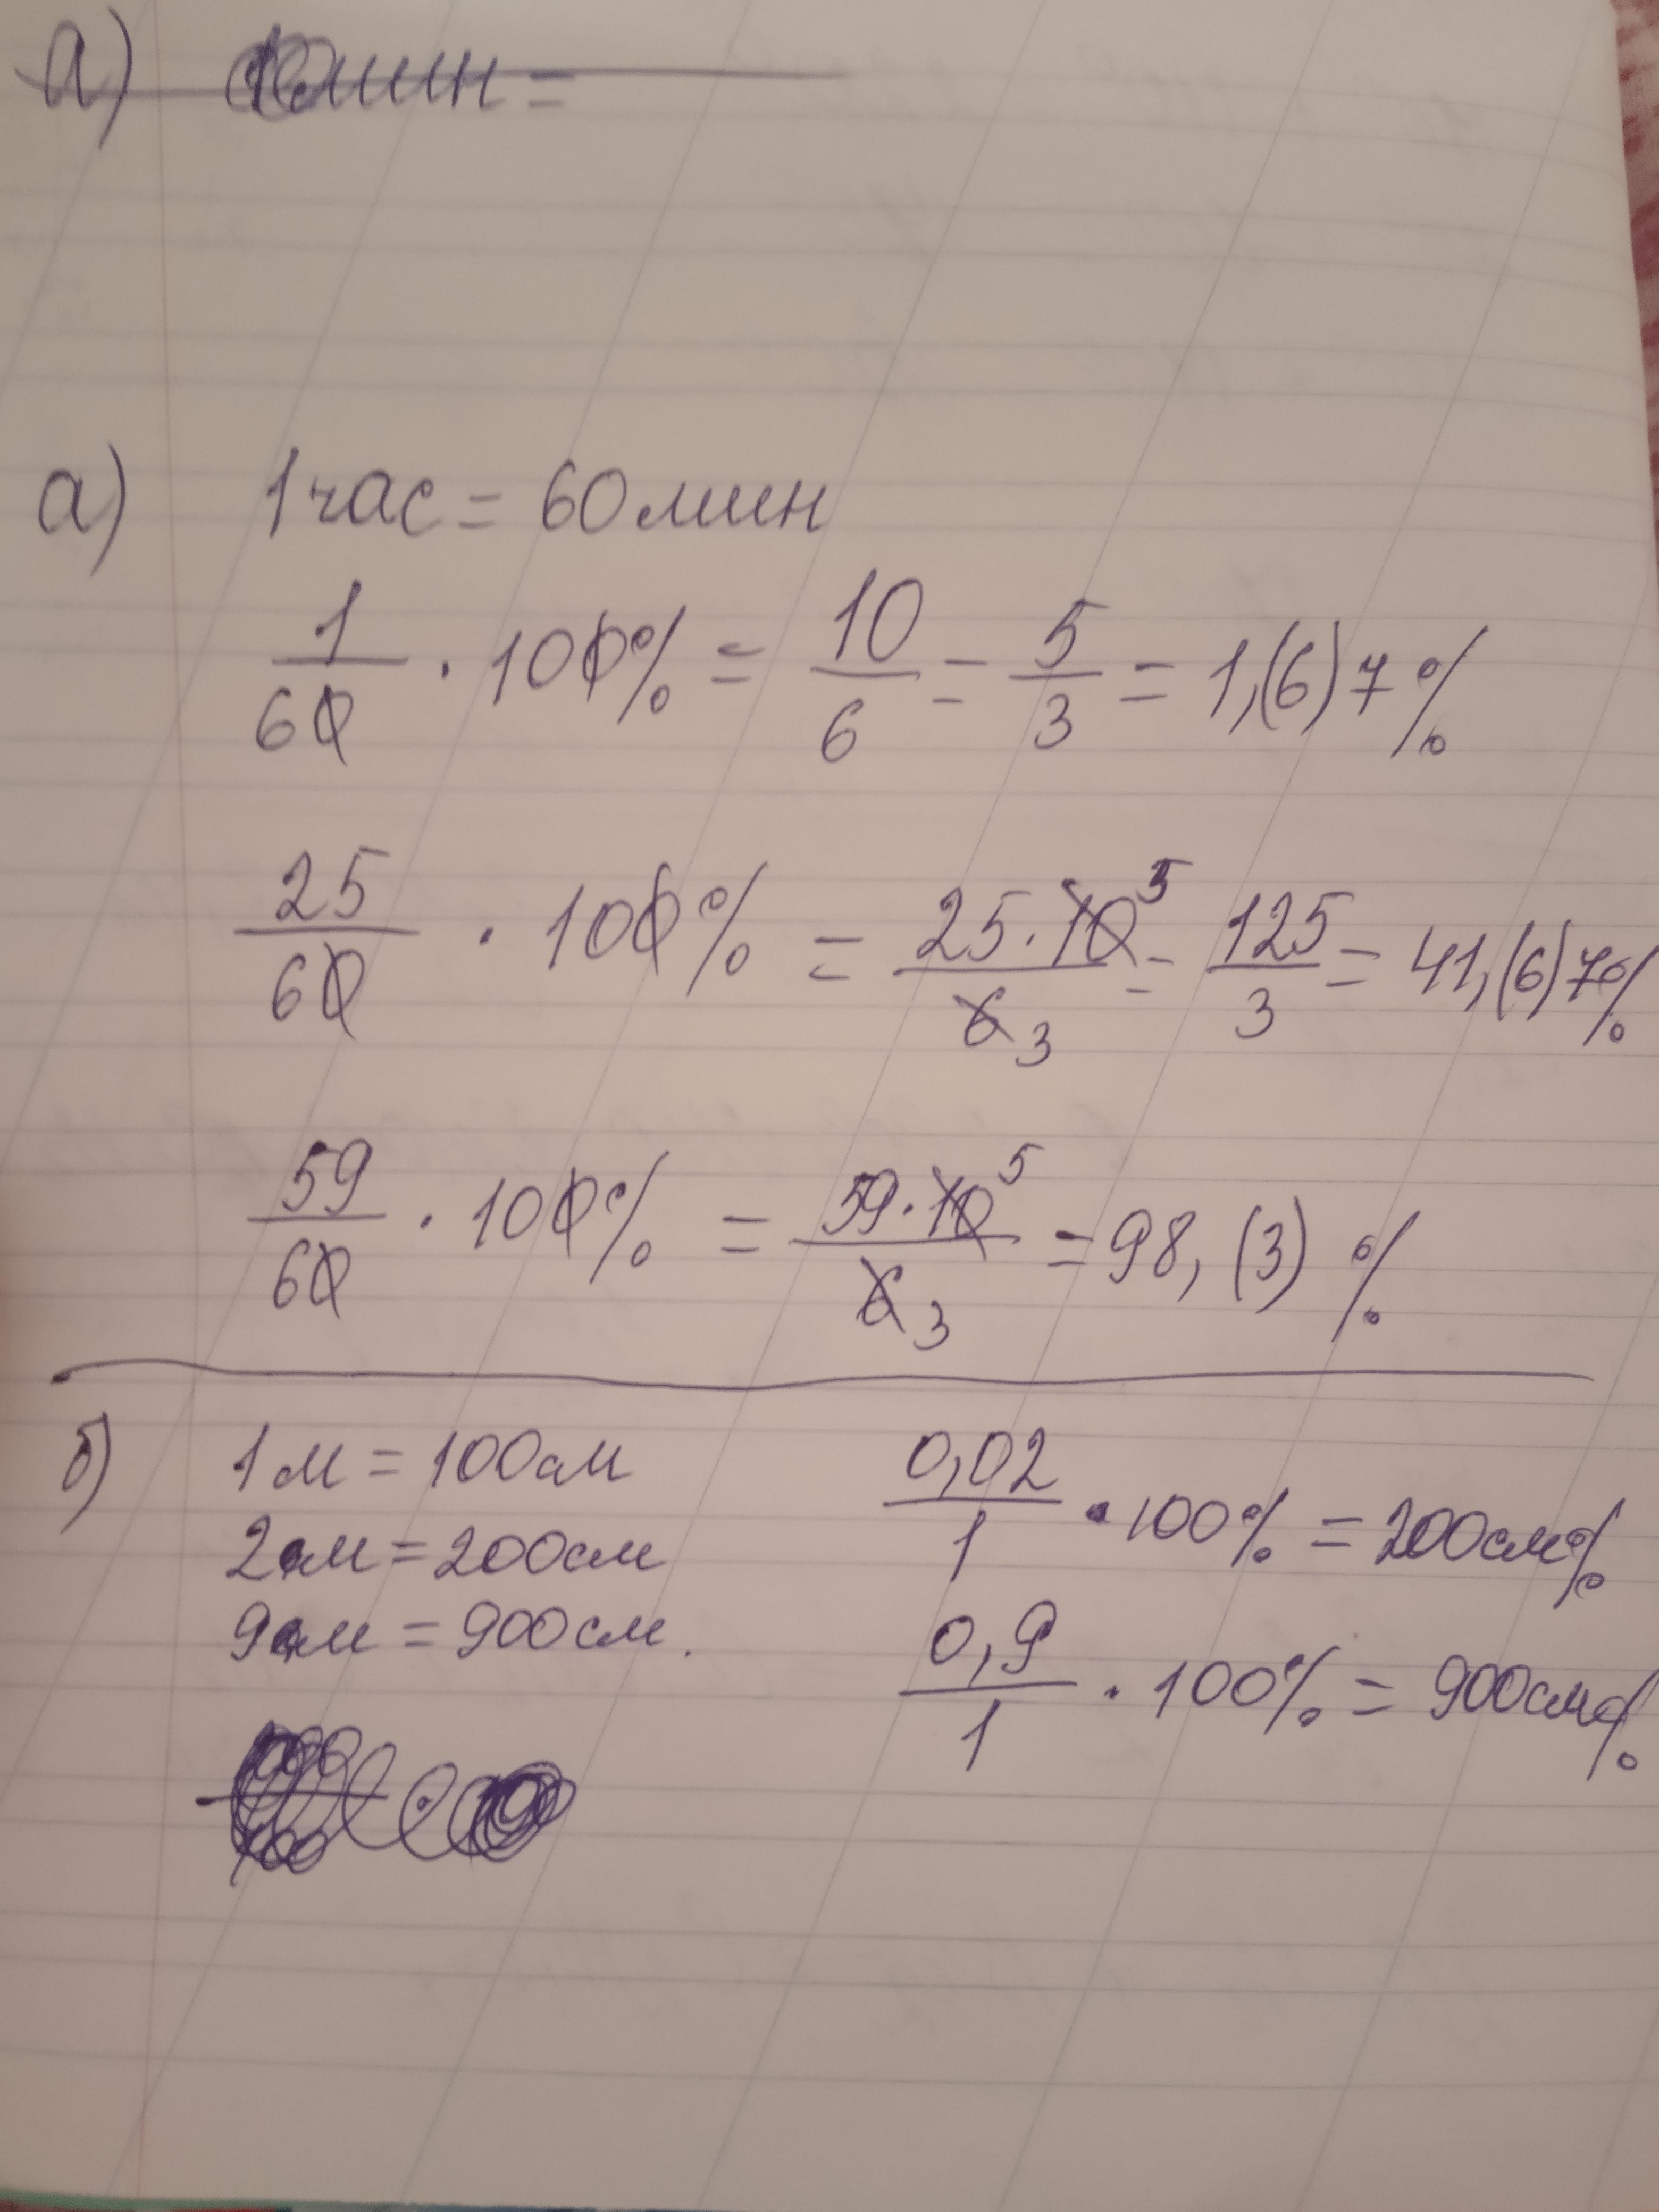 а) 10мин =
а) 1 час = 60 мин
1/60 · 100% = 10/6 = 5/3 = 1,(6)7%
25/60 · 100% = 25·10 5/6 3 = 125/3 = 41,(6)7%
59/60 · 100% = 59·10 5/6 3 = 98,(3) %
б) 1м = 100см
0,02/1 · 100% = 200см%
2м = 200см
9м = 900см.
0,9/1 · 100% = 900см%